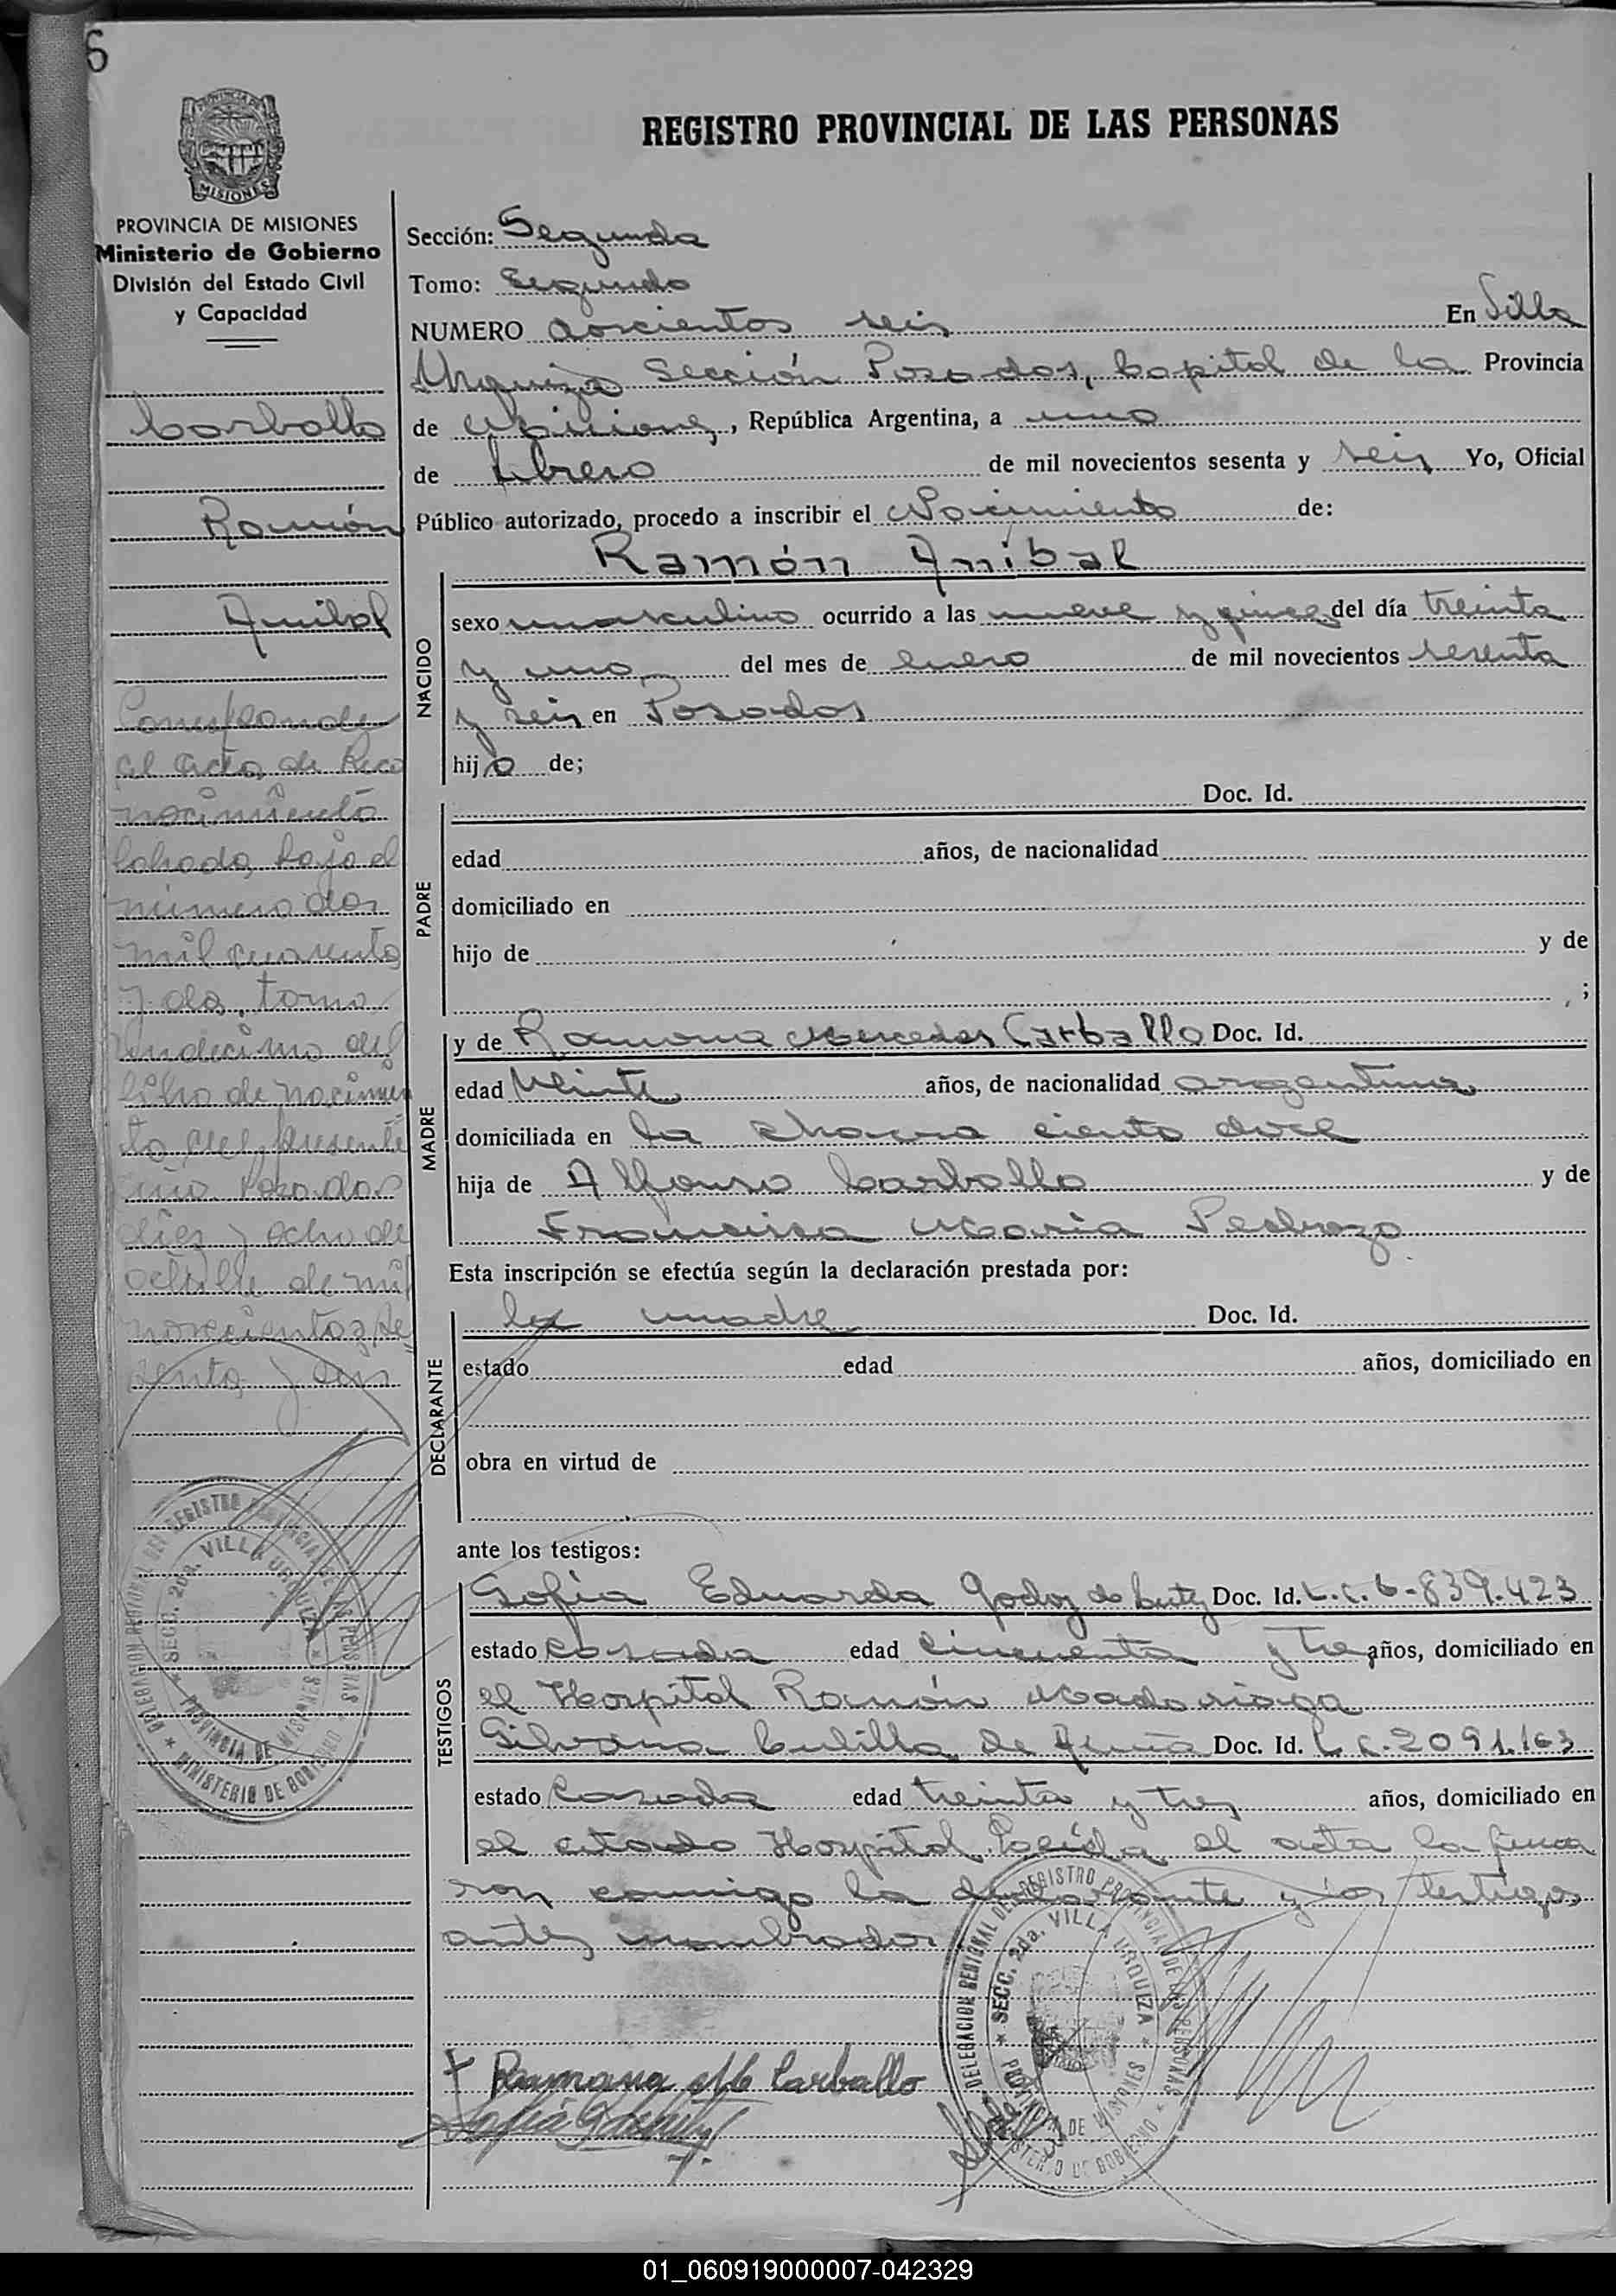 6
REGISTRO PROVINCIAL DE LAS PERSONAS
PROVINCIA DE
MISIONES
PROVINCIA DE MISIONES
Ministerio de Gobierno
División del Estado Civil
y Capacidad
Carballo
Ramón
Anibal
Corresponde
al acta de Reco
nocimiento
labrada bajo el
número dos
mil cuarenta
y dos, tomo
undecimo del
libro de nacimien
to del presente
año. Posadas
diez y ocho de
octubre de mil
novecientos se
senta y seis
Sección: Segunda
Tomo: Segundo
NUMERO doscientos seis En Villa
Urquiza Sección Posadas, Capital de la Provincia
de Misiones, República Argentina, a uno
de febrero de mil novecientos sesenta y seis Yo, Oficial
Público autorizado, procedo a inscribir el Nacimiento de:
NACIDO
Ramón Anibal
sexo masculino ocurrido a las nueve y quince del día treinta
y uno del mes de Enero de mil novecientos sesenta
y seis en Posadas
hijo de;
PADRE
Doc. Id.
edad años, de nacionalidad
domiciliado en
hijo de y de
;
MADRE
y de Ramona Mercedes Carballo Doc. Id.
edad Veinte años, de nacionalidad argentina
domiciliada en la Chacra ciento doce
hija de Alfonso Carballo y de
Francisca Maria Pedrozo
Esta inscripción se efectúa según la declaración prestada por:
DECLARANTE
la madre Doc. Id.
estado edad años, domiciliado en
obra en virtud de
ante los testigos:
TESTIGOS
Sofia Eduarda Godoy de Doc. Id. L.C. 6-839.423
estado Casada edad Cincuenta y tres años, domiciliado en
el Hospital Ramón Madariaga
Silvana de Doc. Id. L.C. 2091.163
estado Casada edad treinta y tres años, domiciliado en
el citado Hospital. Leída el acta la firma
ron conmigo la declarante y los testigos
antes nombrados
DELEGACION REGIONAL DEL REGISTRO PROVINCIAL DE LAS PERSONAS
SECC. 2da. VILLA URQUIZA
PROVINCIA DE MISIONES
MINISTERIO DE GOBIERNO
DELEGACION REGIONAL DEL REGISTRO PROVINCIAL DE LAS PERSONAS
SECC. 2da. VILLA URQUIZA
PROVINCIA DE MISIONES
MINISTERIO DE GOBIERNO
Ramona M Carballo
01_060919000007-042329